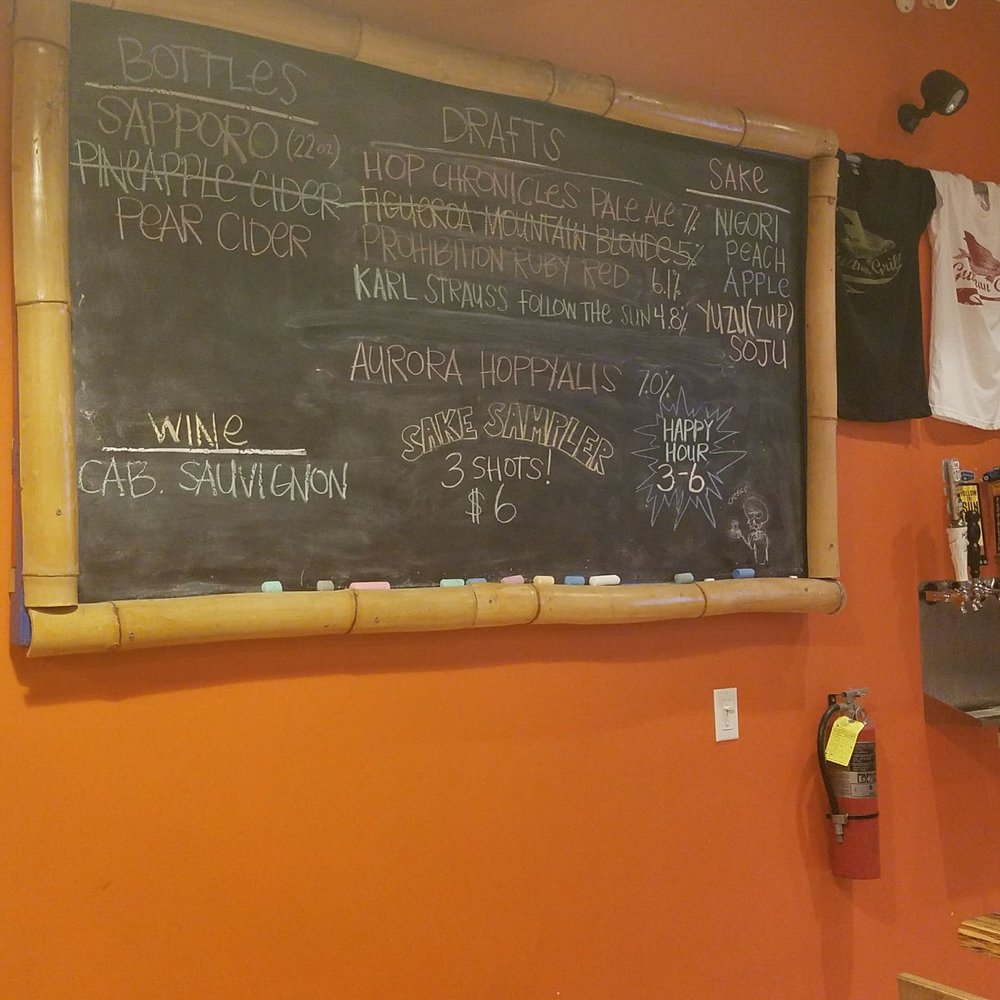 BOTTLES
SAPPORO (22oz)
PINEAPPLE CIDER
PEAR CIDER
WINE
CAB. SAUVIGNON
DRAFTS
HOP CHRONICLES PALE ALE 7%
FIGUEROA MOUNTAIN BLONDE 5%
PROHIBITION RUBY RED 6.1%
KARL STRAUSS FOLLOW THE SUN 4.8%
AURORA HOPPYALIS 7.0%
SAKE SAMPLER
3 SHOTS!
$6
SAKE
NIGORI
PEACH
APPLE
YUZU(7UP)
SOJU
HAPPY
HOUR
3-6
Grill
SUN